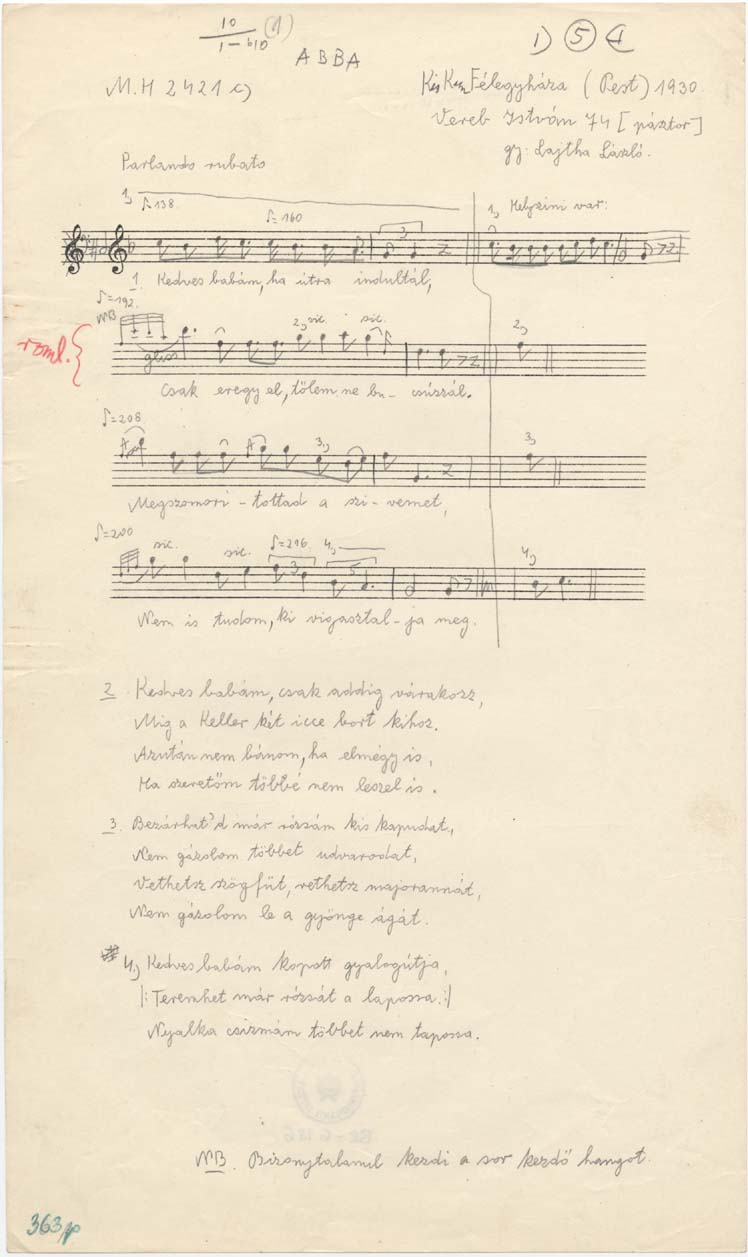 10 (1)
1 – b10
ABBA
1) 5 4
M.H 2421 c)
Kis Kun Félegyháza (Pest) 1930.
Vereb István 74 [pásztor]
gy: Lajtha László.
Parlando rubato
1, ♪=138 ♪=160
1, Helyszini var:
3
1. Kedves babám, ha útra indultál,
♪=192.
NB
roml. {
gliss
2, sic. sic.
2,
Csak eregy el, tőlem ne bu– csúzzál.
♪=208
3,
3,
Megszomori – tottad a szi – vemet,
♪=200
sic. sic. ♪=216. 4,
3 5
4,
Nem is tudom, ki vigasztal – ja meg.
2. Kedves babám, csak addig várakozz,
Mig a Keller két icce bort kihoz.
Azután nem bánom, ha elmégy is,
Ha szeretőm többé nem leszel is.
3. Bezárhat'd már rózsám kis kapudat,
Nem gázolom többet udvarodat,
Vethetsz szögfüt, vethetsz majorannát,
Nem gázolom le a gyönge ágát.
4, Kedves babám kopott gyalogútja,
|: Teremhet már rózsát a lapossa. :|
Nyalka csizmám többet nem tapossa.
NB. Bizonytalanul kezdi a sor kezdő hangot.
363